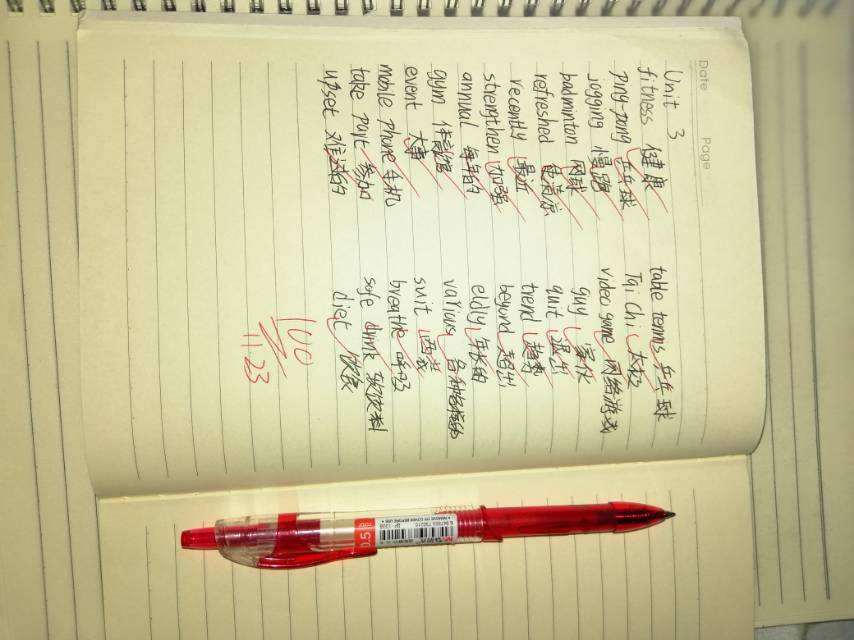 Date
Page
Unit 3
fitness 健康
ping-pang 乒乓球
jogging 慢跑
badminton 网球
refreshed 使清凉
recently 最近
strengthen 加强
annual 每年的
gym 体育馆
event 大事
mobile phone 手机
take part 参加
upset 难过的
table tennis 乒乓球
Tai Chi 太极
video game 网络游戏
guy 家伙
quit 退出
trend 趋势
beyond 超出
eldly 年长的
various 各种各样的
suit 西装
breathe 呼吸
sofe drink 软饮料
diet 饮食
100
11.23
0.5